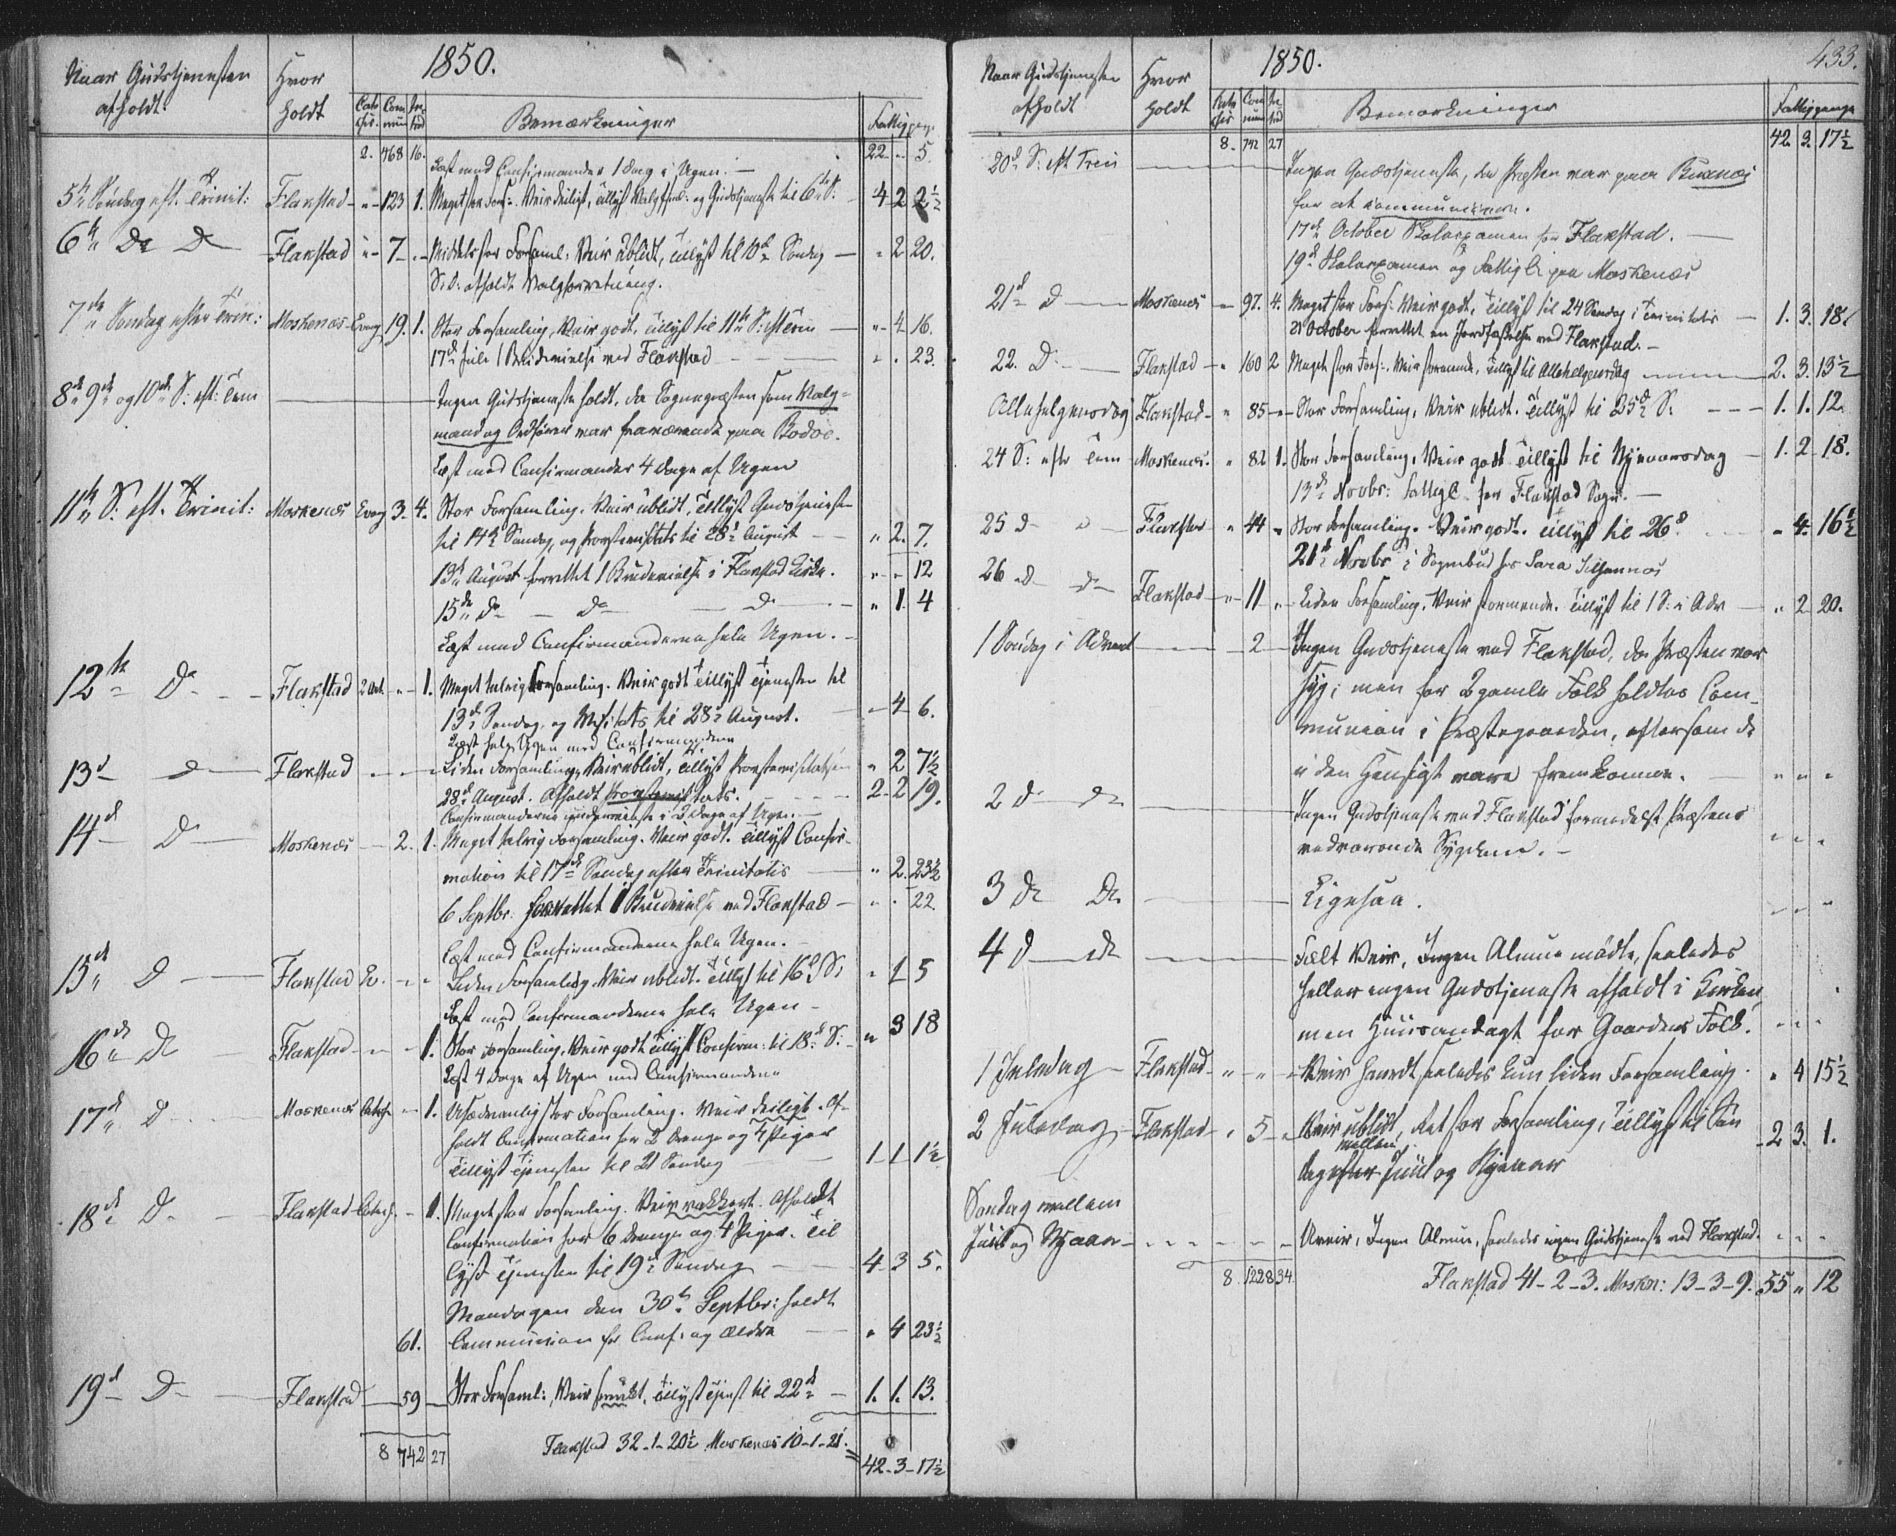 1850.
Naar Gudstjenesten afholdt.
Hvor holdt
Cate chis. Com mun In trod
Bemærkninger
Fattigpen.
2. 468 16. 22 - " - 5.
Læst med Confirmander 1 Dag i Ugen. —
5te Søndag eft. Trinit: Flakstad - " - 123 1. Meget stor Fors: Veir deiligt, tillyst Valgforr: og Gudstjeneste til 6te S. - 4 2 2½
6te Do Do Flakstad " - 7 - " - Middels stor Forsaml: Veir ublidt, tillyst til 10de Søndag — " 2 20.
S: D: afholdt Valgforretning.
7de Søndag efter Trin: Moskenæs - Evang. 19. 1. Stor Forsamling, Veir godt, tillyst til 11te S: eft Trin — " - 4 - 16.
17de Juli 1 Brudevielse ved Flakstad - - - " . 23.
8de 9de og 10de S: eft: Trin — Ingen Gudstjeneste holdt, da Sognepræsten som Valg-
mand og Ordfører var fraværende paa Bodøe.
Læst med Confirmander 4 Dage af Ugen
11te S: eft. Trinit: Moskenæs Evang 3. 4. Stor Forsamling. Veir ublidt, tillyst Gudstjeneste
til 14de Søndag, og Provstevisitats til 28de August — " 2. 7.
13de August forrettet 1 Brudevielse i Flakstad Kirke. " - " - 12
15de Do — Do — Do — " 1. 4
Læst med Confirmanderne hele Ugen. -
12te Do - - Flakstad 2 Art. " - 1. Meget talrig Forsamling. Veir godt tillyst Tjenesten til
13de Søndag og Visitats til 28de August. - 4 - 6.
Læst hele Ugen med Confirmanderne
13de Do Flakstad - - - Liden Forsamling, Veir ublidt, tillyst Provstevisitatsen " 2 7½
28de August. Afholdt Provstevisitats. - - - 2 - 2 19.
14de Do Moskenæs - 2. 1. Meget talrig Forsamling. Veir godt. tillyst Confir-
mation til 17de Søndag efter Trinitatis — " 2. 23½
6 Septbr: forrettet 1 Brudevielse ved Flakstad — " . 22.
Læst med Confirmanderne hele Ugen. -
15de Do — Flakstad Do. - " - " Liden Forsamling. Veir ublidt. tillyst til 16de S: " 1 5
Læst med Confirmanderne hele Ugen -
16de Do - Flakstad - " - 1. Stor Forsamling, Veir godt tillyst Confirm: til 18de S: - " 3 18
Læst 4 Dage af Ugen med Confirmanderne
17de Do Moskenæs Catech - 1. Usædvanlig stor Forsamling. Veir deiligt. Af-
holdt Confirmation for 2 Drenge og 4 Piger
tillyst Tjenesten til 21 Søndag — 1 - 1 - 1½
18de Do - Flakstad - Catech. - 1. Meget stor Forsamling. Veir vakkert. Afholdt
Confirmation for 6 Drenge og 4 Piger. Til
lyst Tjenesten til 19de Søndag — 4 - 3 5.
Mandagen den 30te Septbr: holdt
61. Communion for Conf: og Ældre — " 4 23½
19de Do — Flakstad — 59 — Stor Forsaml:, Veir smukt, tillyst Tjenst til 22de — 1. 1. 13.
8 742 27 Flakstad 32 - 1 - 20½ Moskenæs 10 - 1 - 21. 42 - 3 - 17½
433.
1850.
Naar Gudstjenesten afholdt
Hvor holdt
Kate chis Com mun In trod
Bemærkninger
Fattigpenge
8. 742 27 42. 3. 17½
20de S: eft Trin — Ingen Gudstjeneste, da Præsten var paa Buxnæs
for at communicere.
17de October Skoleexamen for Flakstad. —
19de Skoleexamen og Fattigk: paa Moskenæs
21de Do — Moskenæs - 97. 4. Meget stor Fors: Veir godt, tillyst til 24 Søndag i Trinitatis — 1. 3. 18.
21 October forrettet en Jordfæstelse ved Flakstad. -
22. Do - Flakstad - 100 2 Meget stor Fors:, Veir stormende, tillyst til Allehelgensdag — 2. 3. 13½
Allehelgensdag Flakstad - " 85 - " - Stor Forsamling, Veir ublidt. tillyst til 25de S: - - - 1. 1. 12.
24 S: eftr Trin Moskenæs. " 82 1. Stor Forsamling, Veir godt tillyst til Nytaarsdag - 1. 2 - 18.
13de Novbr: Fattigk. for Flakstad Sogn. —
25 D - Flakstad " 44 " Stor Forsamling. Veir godt. tillyst til 26de - - " 4. 16½
21de Novbr i Sognebud
26 D - Do Flakstad - " - 11 " - Liden Forsamling. Veir stormende. tillyst til 1 S: i Adv — " 2 20.
1 Søndag i Advent — 2 — Ingen Gudstjeneste ved Flakstad, da Præsten var
syg; men for 2 gamle Folk holdtes Com-
munion i Præstegaarden, eftersom de
i den Hensigt vare fremkomne. — " " "
2 D - Do — Ingen Gudstjeneste ved Flakstad formedelst Præstens
vedvarende Sygdom. - " " "
3 Do Do — Ligesaa. " " "
4 D - Do — Fælt Veir, Ingen Almue mødte, saaledes
heller ingen Gudstjeneste afholdt i Kirken
men Huusandagt for Gaardens Folk. " " "
1 Juledag - Flakstad - " - " - Veir haardt saaledes kun liden Forsamling. " 4 15½
2 Juledag - Flakstad - " 5 - " Veir ublidt, Ret stor Forsamling, tillyst til Søn
dag efter mellem Juul og Nytaar - 2. 3. 1.
Søndag mellem
Juul og Nytaar - - - - - Uveir, Ingen Almue, saaledes ingen Gudstjeneste ved Flakstad. " " "
8. 1228 34. Flakstad 41 - 2 - 3. Mosken: 13 - 3 - 9. 55 " 12